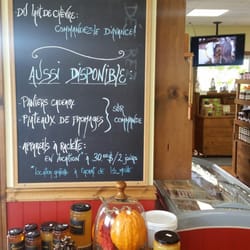 DU LAIT DE CHÈVRE:
COMMANDEZ-LE D'AVANCE!
AUSSI DISPONIBLE:
- PANIERS CADEAUX
- PLATEAUX DE FROMAGES
SUR
COMMANDE
- APPAREILS À RACLETTE:
EN LOCATION* À 30.00$/2 jours
*location gratuite à l'achat de